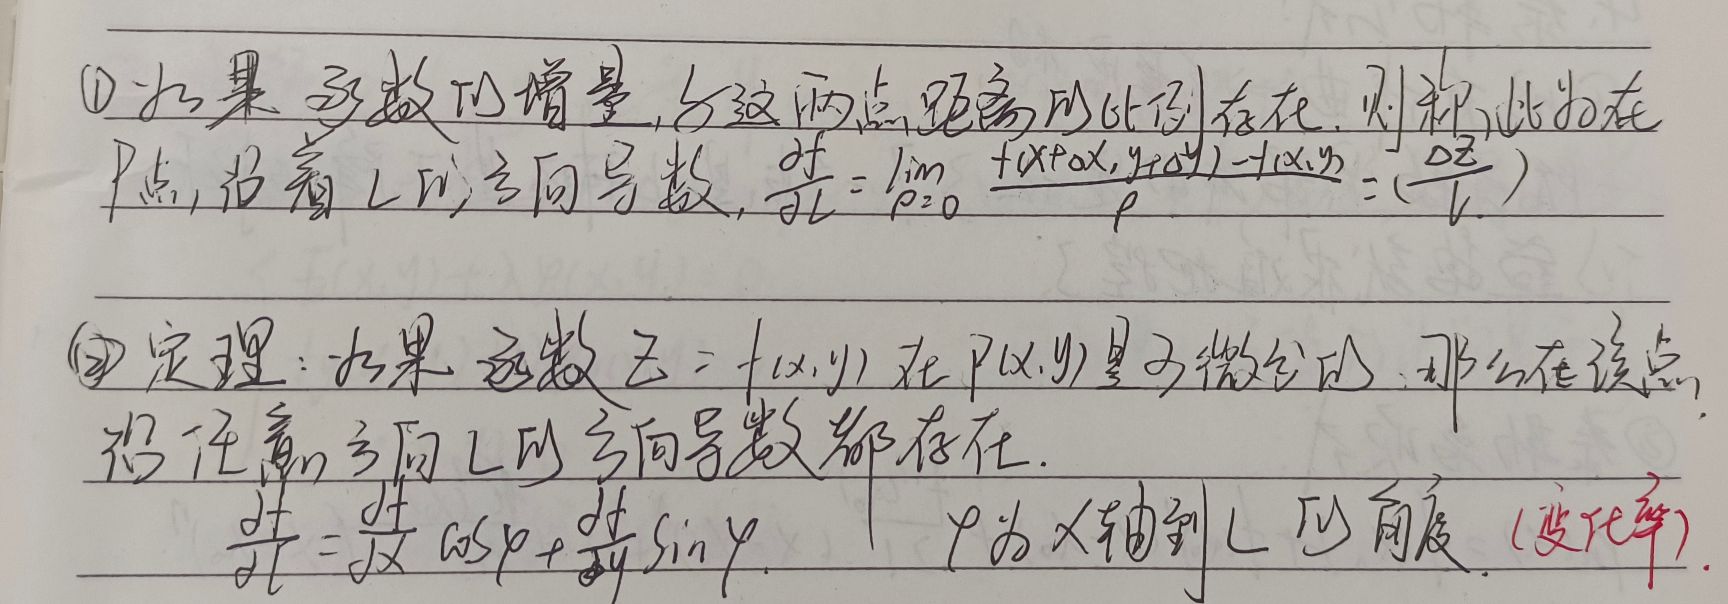 ① 如果函数的增量,与这两点距离的比例存在.则称,此为在
P点,沿着L的方向导数, ∂f/∂L = lim ρ=0 (f(x+△x, y+△y) - f(x,y))/ρ = (△Z/L)
② 定理:如果函数 Z = f(x,y) 在 P(x,y) 是可微分的.那么在该点,
沿任意方向L的方向导数都存在.
∂f/∂l = ∂f/∂x cosφ + ∂f/∂y sinφ. φ为X轴到L的角度.(变化率).